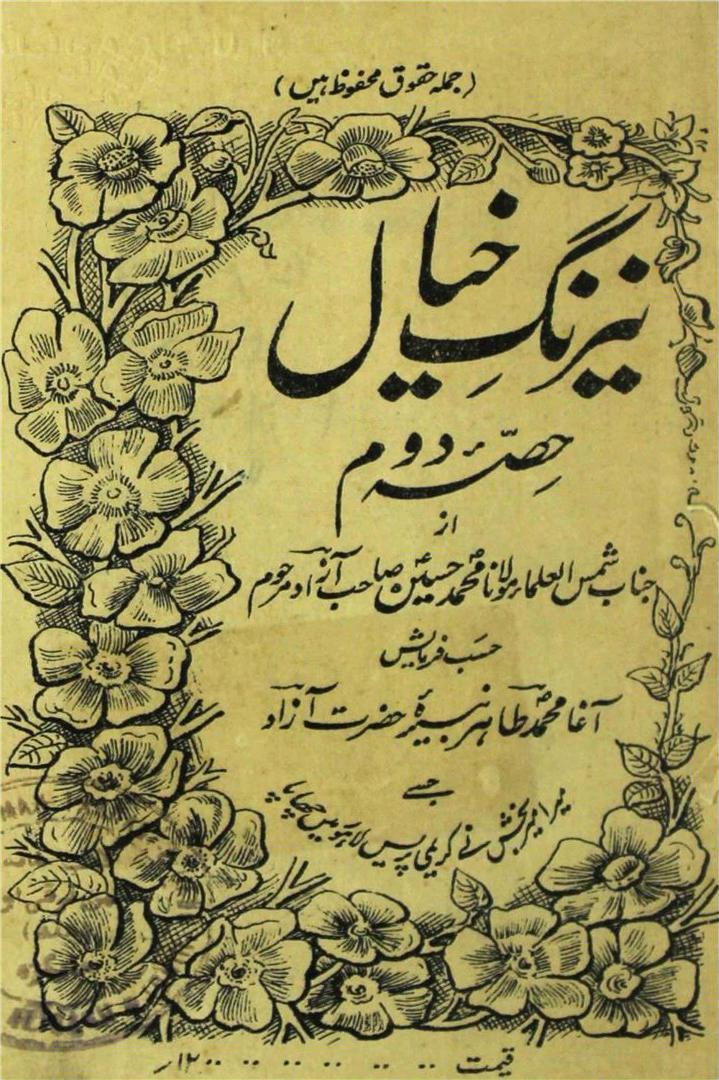 (جملہ حقوق محفوظ ہیں)
نیرنگِ خیال
حصّہ دوم
از
جناب شمس العلماء مولانا محمد حسین صاحب آزاد مرحوم
حسب فرمایش
آغا محمد طاہر نبیرۂ حضرت آزاد
جسے
میر امیر بخش نے کریمی پریس لاہور میں چھاپا
قیمت ۱۲؍